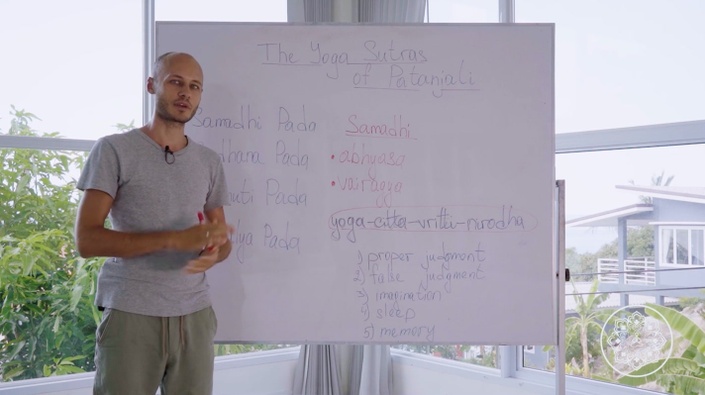 The Yoga Sutras
of Patanjali
Samadhi Pada
Pada
Pada
Pada
Samadhi
• abhyasa
• vairagya
yoga-citta-vritti-nirodha
1) proper judgment
2) false judgment
3) imagination
4) sleep
5) memory